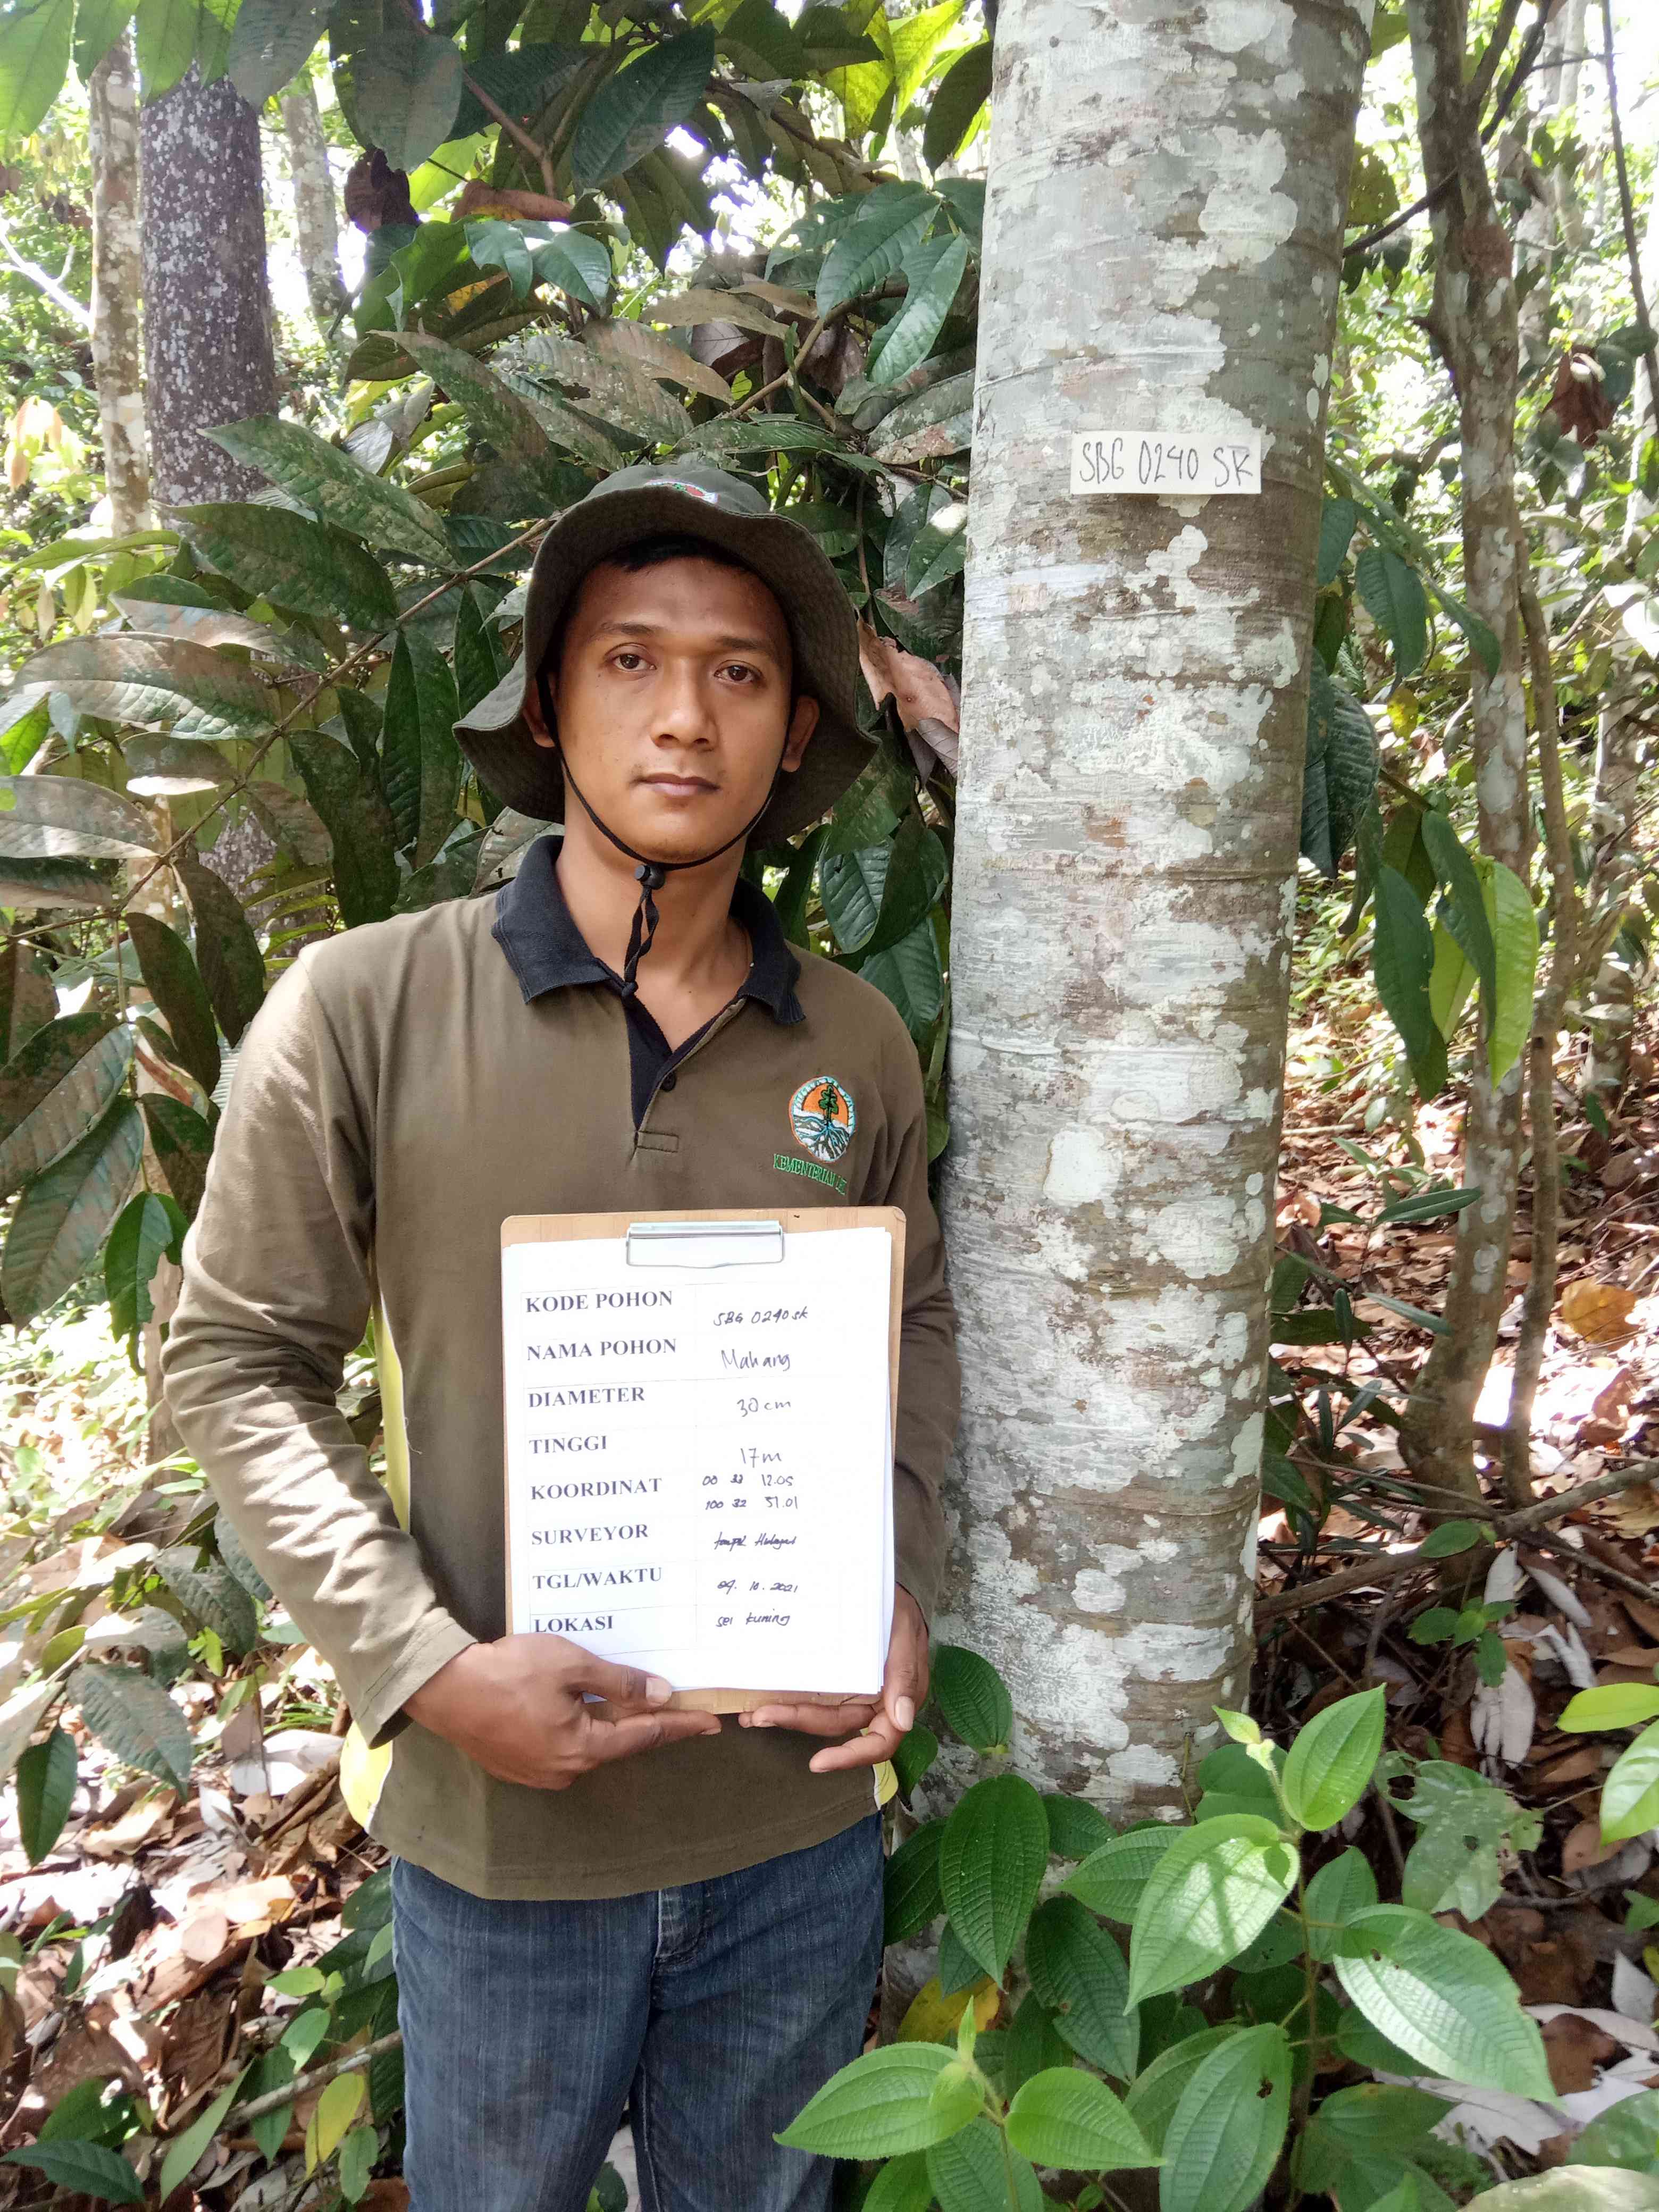 SBG 0240 SK
KEMENTERIAN
KODE POHON SBG 0240 SK
NAMA POHON Mahang
DIAMETER 30 cm
TINGGI 17 m
KOORDINAT 00 32 12.05
100 32 51.01
SURVEYOR
TGL/WAKTU 04. 10. 2021
LOKASI sei kuning